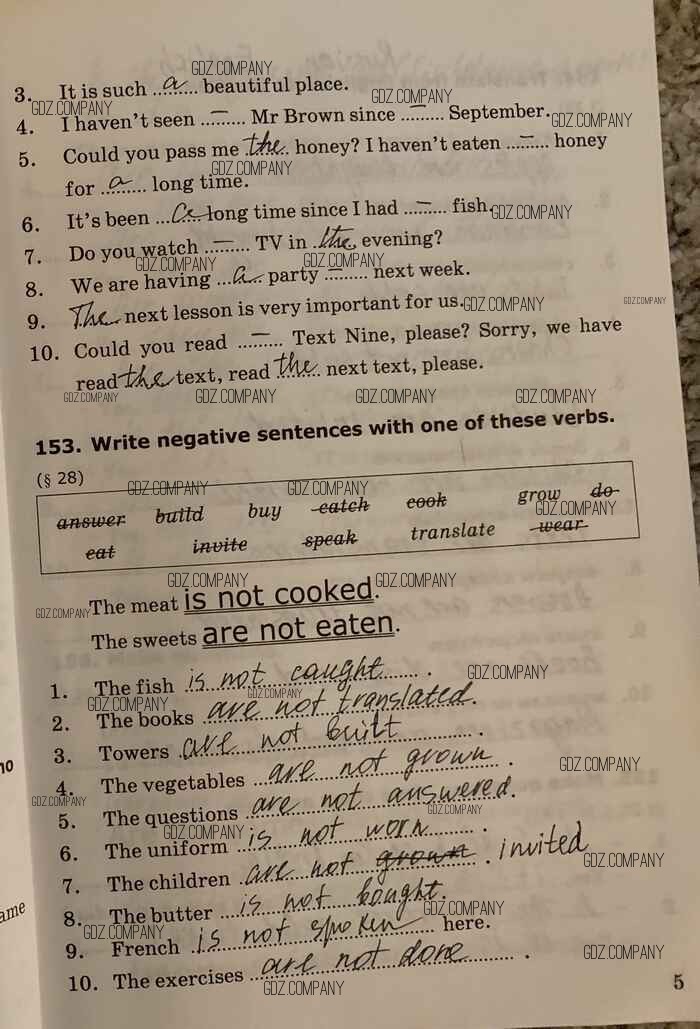 3. It is such a beautiful place.
4. I haven't seen – Mr Brown since – September.
5. Could you pass me the honey? I haven't eaten – honey
for a long time.
6. It's been a long time since I had – fish.
7. Do you watch – TV in the evening?
8. We are having a party – next week.
9. The next lesson is very important for us.
10. Could you read – Text Nine, please? Sorry, we have
read the text, read the next text, please.
153. Write negative sentences with one of these verbs.
(§ 28)
answer build buy catch cook grow do
eat invite speak translate wear
The meat is not cooked.
The sweets are not eaten.
1. The fish is not caught.
2. The books are not translated.
3. Towers are not built.
4. The vegetables are not grown.
5. The questions are not answered.
6. The uniform is not worn.
7. The children are not grown. invited
8. The butter is not bought.
9. French is not spoken here.
10. The exercises are not done.
5
ame
GDZ.COMPANY